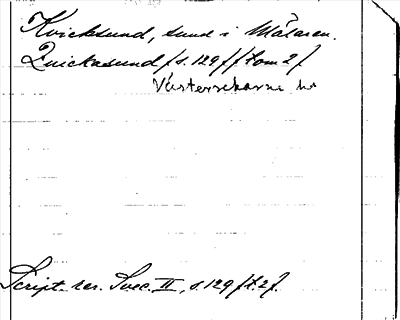 Kvicksund, sund i Mälaren.
Quickasund /s. 129/ /tom 2/
Västerrekarne hd
Script. rer. Svec. II, s 129 /t. 2/.